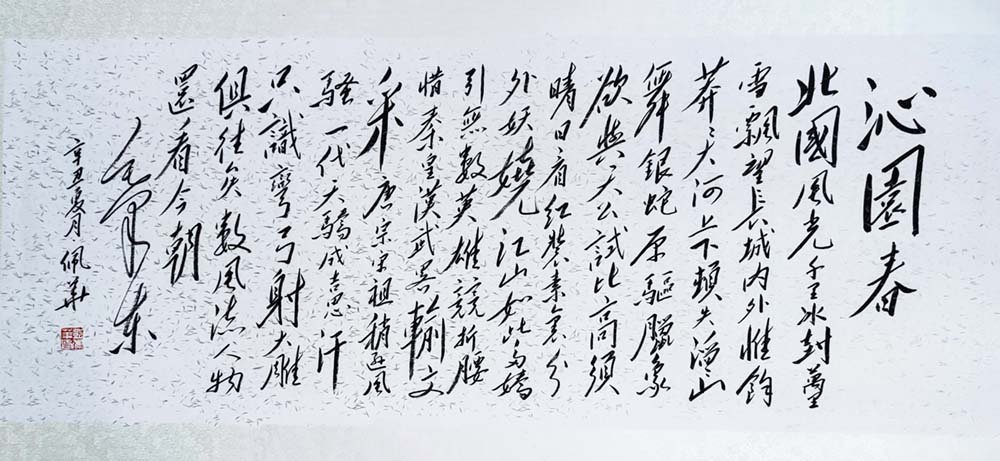 沁園春
北國風光千里冰封萬里
雪飄望長城內外惟餘
莽々大河上下頓失滔々山
舞銀蛇原驅臘象
欲與天公試比高須
晴日看紅裝素裹分
外妖嬈江山如此多嬌
引無數英雄競折腰
惜秦皇漢武略輸文
采唐宗宋祖稍遜風
騷一代天驕成吉思汗
只識彎弓射大雕
俱往矣數風流人物
還看今朝
毛澤東
辛丑夏月佩華